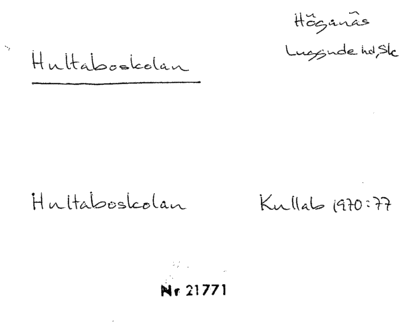 Höganäs
Luggude hd, Sk
Hultaboskolan
Hultaboskolan Kullab 1970:77
Nr 21771